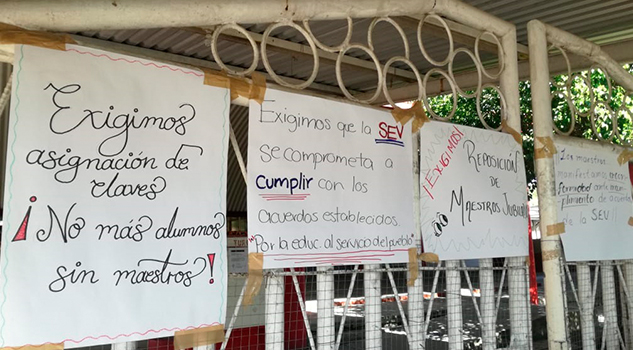 Exigimos
asignación de
claves
¡No más alumnos
sin maestros!
Exigimos que la SEV
se comprometa a
cumplir con los
acuerdos establecidos.
"Por la educ. al servicio del pueblo"
¡EXIGIMOS!
REPOSICIÓN
DE
MAESTROS
Los maestros
manifestamos
de acuerdo
de la SEV!!